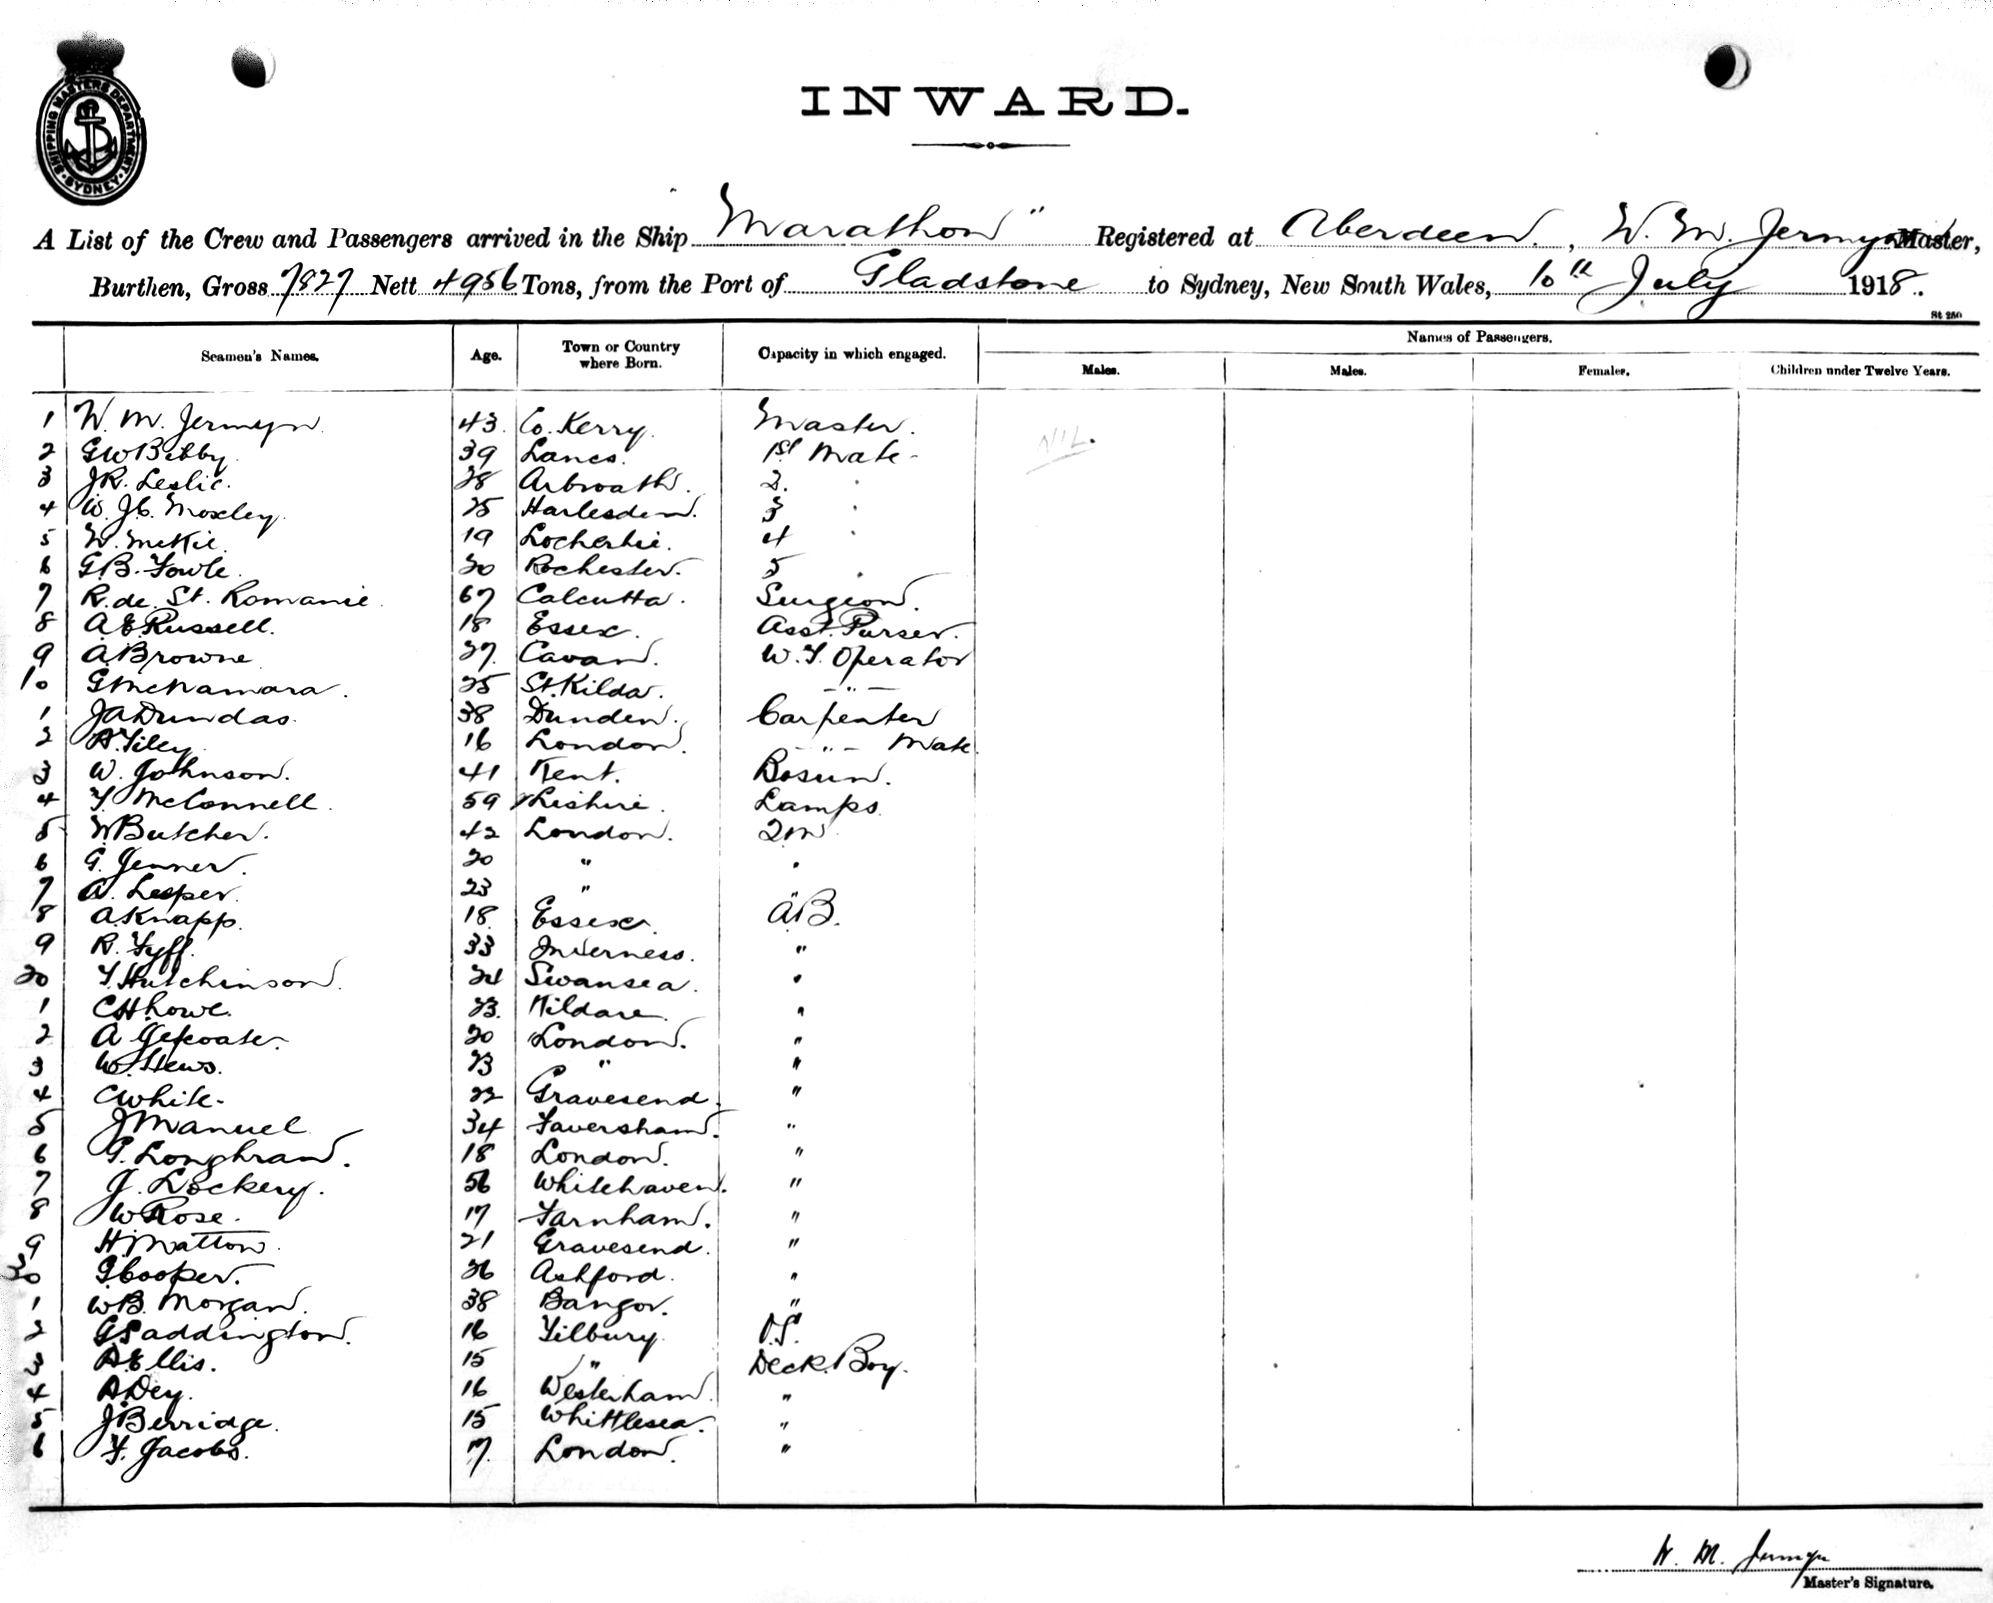 SHIPPING MASTERS DEPARTMENT
SYDNEY
INWARD.
A List of the Crew and Passengers arrived in the Ship Marathon" Registered at Aberdeen, W. M. Jermyn Master,
Burthen, Gross 7827 Nett 4956 Tons, from the Port of Gladstone to Sydney, New South Wales, 10th July 1918.
St 250
Seamen's Names. Age. Town or Country where Born. Capacity in which engaged. Names of Passengers.
Males. Males. Females. Children under Twelve Years.
1 W. M. Jermyn 43. Co. Kerry. Master. NIL.
2 G W Bibby 39 Lancs. 1st Mate
3 J R. Leslie. 28 Arbroath. 2. "
4 W. J. C. Moxley. 25 Harlesden. 3 "
5 W. McKie 19 Lockerbie. 4 "
6 G B. Fowle. 20 Rochester. 5 "
7 R. de. St. Romanie 67 Calcutta. Surgeon.
8 A E Russell. 18 Essex. Asst. Purser.
9 A Browne 27. Cavan. W. T. Operator
10 G McNamara. 25 St. Kilda. - " -
1 J A Dundas. 38 Dundee. Carpenter
2 A. Tiley 16 London. - " - Mate.
3 W. Johnson. 41 Kent. Bosun.
4 T McConnell. 59 Cheshire. Lamps
5 W Butcher. 42 London. Q M
6 G. Jenner. 20 " "
7 A. Lesper. 23 " "
8 A Knapp. 18 Essex. A.B.
9 R. Fyff. 33 Inverness. "
20 T. Hutchinson. 24 Swansea. "
1 C H Lowe. 23. Kildare. "
2 A 20 London. "
3 W. Hews. 23 " "
4 C White 22 Gravesend. "
5 J Manuel 34 Faversham. "
6 G. Loughran. 18 London. "
7 J. Lockery. 56 Whitehaven. "
8 W Rose. 17 Farnham. "
9 H. Matton. 21 Gravesend. "
30 G Cooper. 26 Ashford. "
1 W B. Morgan. 38 Bangor. "
2 G Saddington. 16 Tilbury. O.S.
3 A Ellis. 15 " Deck Boy.
4 A. Dey. 16 Westerham. "
5 J Berridge. 15 Whittlesea. "
6 F. Jacobs. 17. London. "
W. M. Jermyn
Master's Signature.